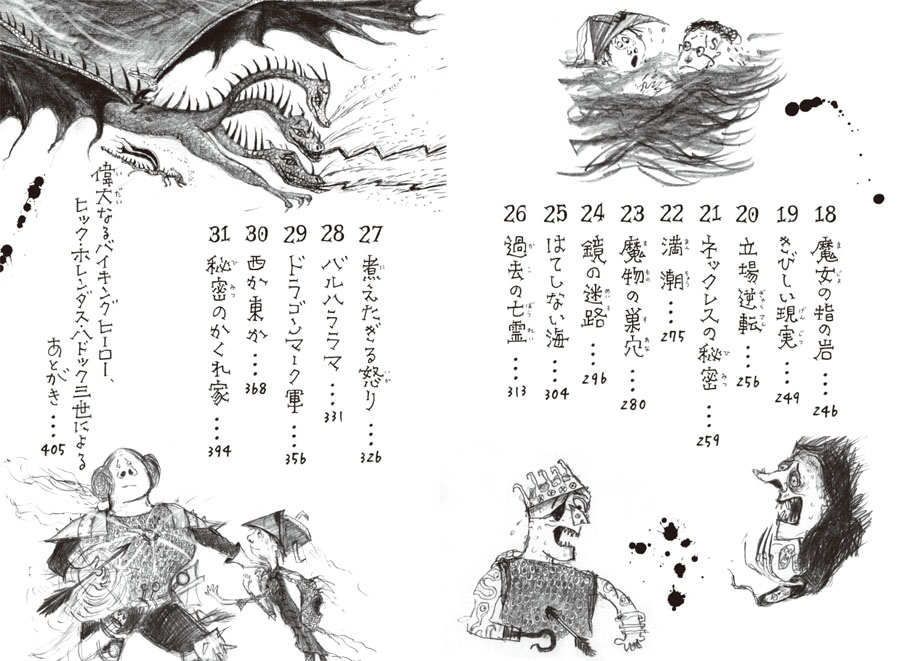 18 魔女の指の岩…246
19 きびしい現実…249
20 立場逆転…256
21 ネックレスの秘密…259
22 満潮…275
23 魔物の巣穴…280
24 鏡の迷路…296
25 はてしない海…304
26 過去の亡霊…313
27 煮えたぎる怒り…326
28 バルハララマ…331
29 ドラゴンマーク軍…356
30 西か東か…368
31 秘密のかくれ家…394
偉大なるバイキングヒーロー、
ヒック・ホレンダス・ハドック三世による
あとがき…405